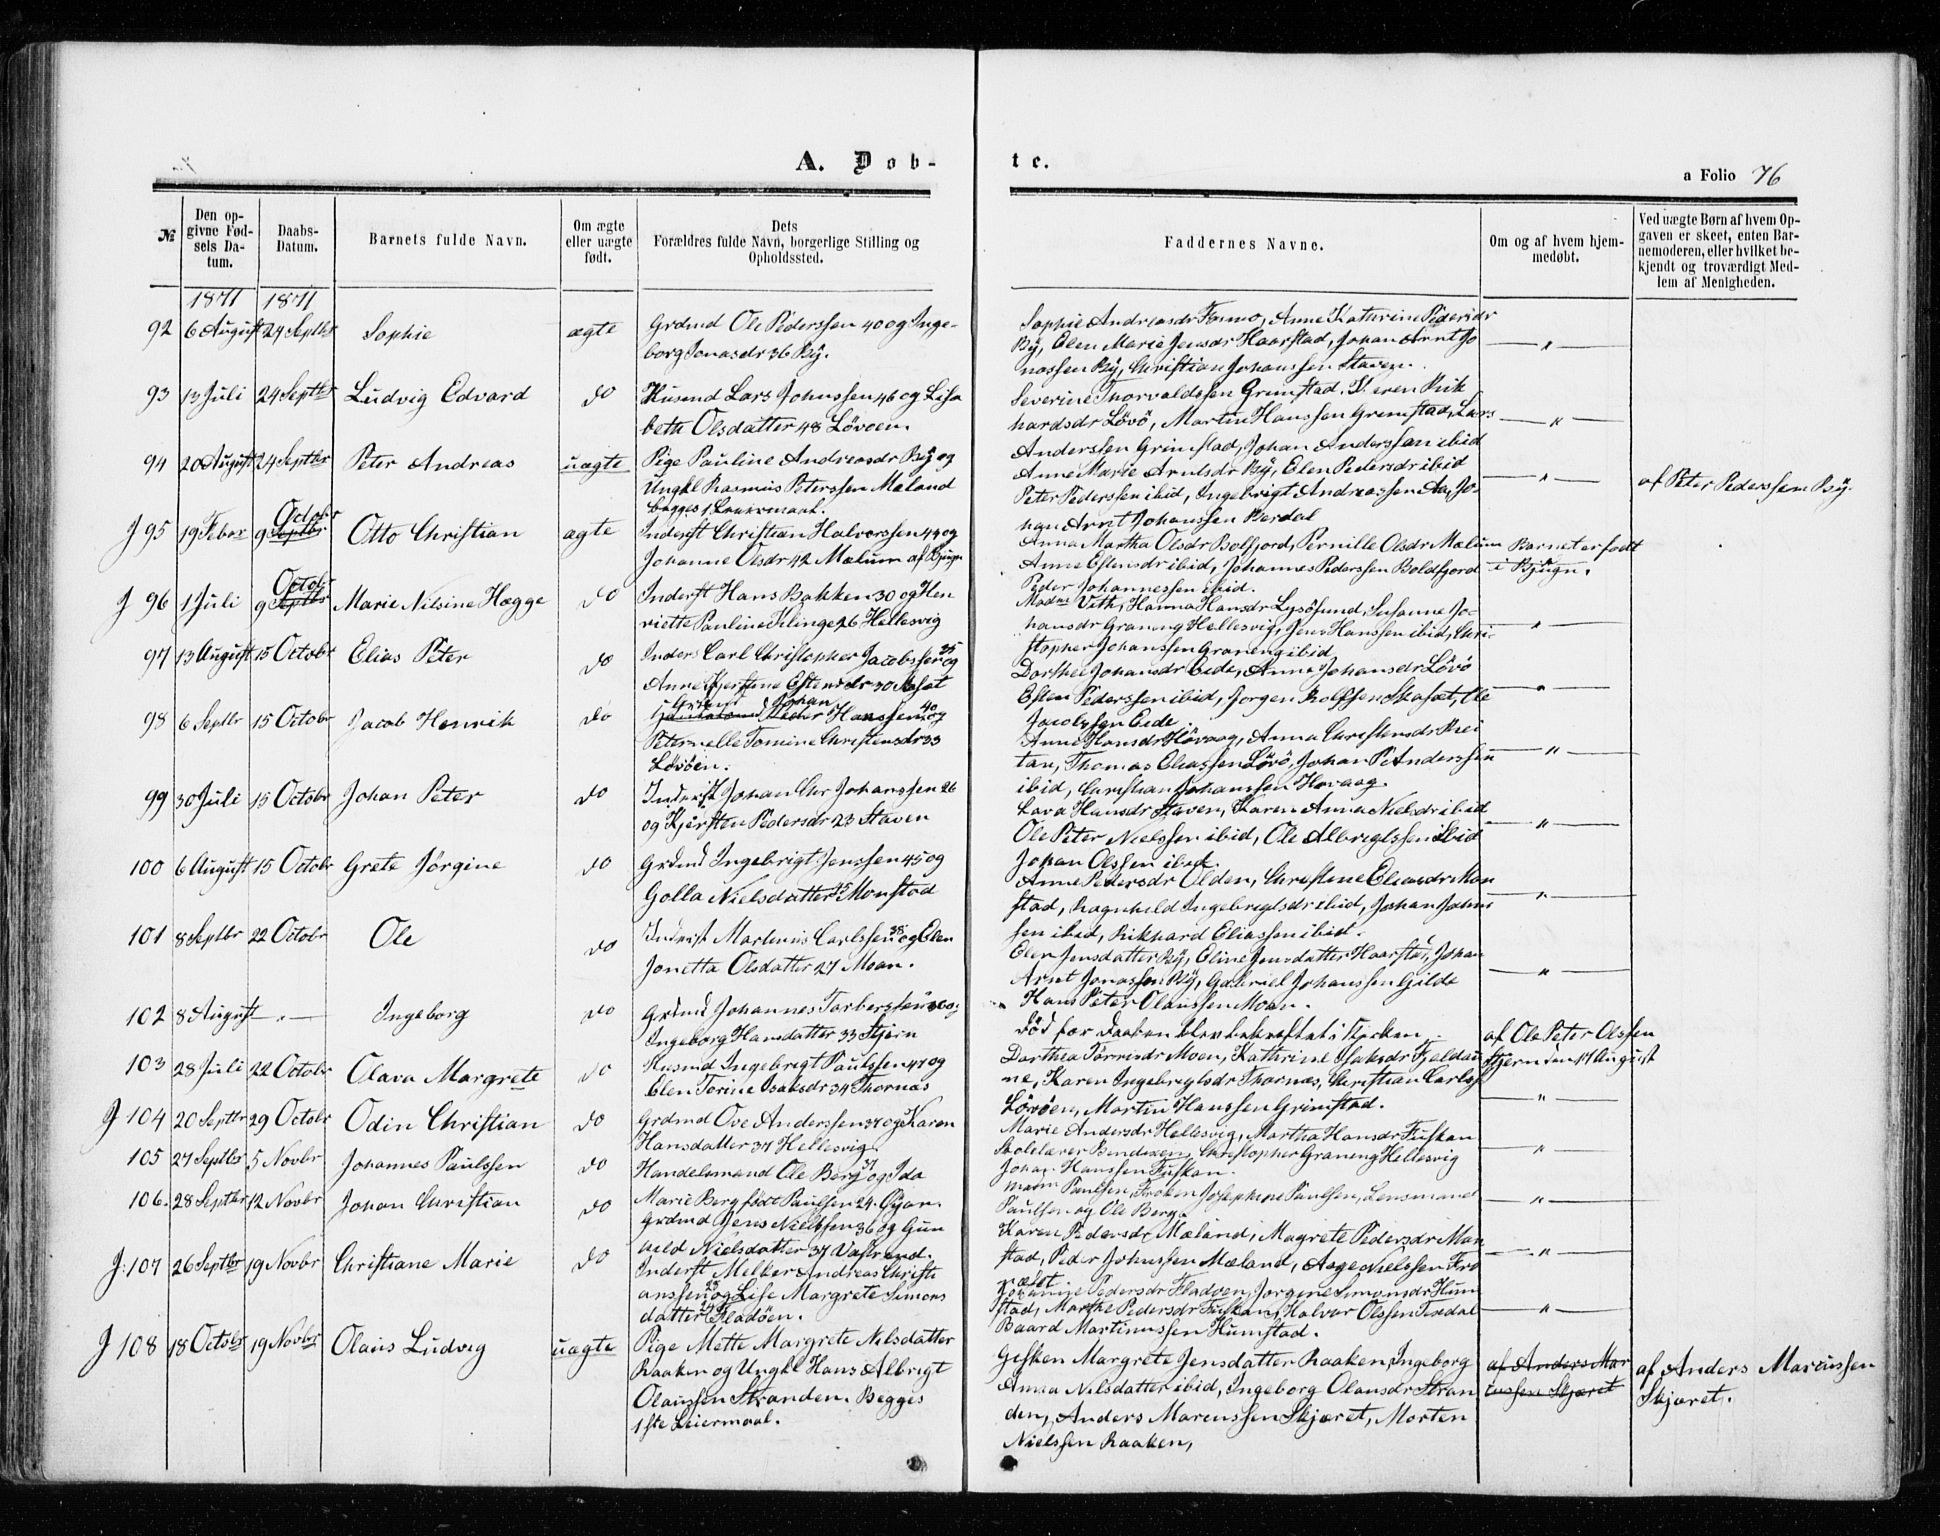 A. Dob-
te.
a Folio 76
№
Den op-
givne Fød-
sels Da-
tum.
Daabs-
Datum.
Barnets fulde Navn.
Om ægte
eller uægte
født.
Dets
Forældres fulde Navn, borgerlige Stilling og
Opholdssted.
Faddernes Navne.
Om og af hvem hjem-
medøbt.
Ved uægte Børn af hvem Op-
gaven er skeet, enten Bar-
nemoderen, eller hvilket be-
kjendt og troværdigt Med-
lem af Menigheden.
1871 1871
92 6 August 24 Septbr Sophie ægte
Grdmd Ole Pederssen 40 og Inge-
borg Jonasdr 36 By.
Sophie Andreasdr Fosmo, Anne Kathrine Pedersdr
By, Elen Marie Jensdr Haarstad, Johan Arnt Jo
nassen By, Christian Johanssen Staven.
"
93 13 Juli 24 Septbr Ludvig Edvard do
Husmd Lars Johnssen 46 og Lisa
beth Olsdatter 48 Lövöen.
Severine Thorvaldssen Grimstad, Karen Rik
hardsdr Lövö, Martin Hanssen Grimstad, Lars
Anderssen Grimstad, Johan Anderssen ibid
"
94 20 August 24 Septbr Peter Andreas uægte
Pige Pauline Andreasdr By og
Ungkl Rasmus Peterssen Mæland
begges 1 Leiermaal.
Anne Marie Arntsdr By, Elen Pedersdr ibid
Peter Pederssen ibid, Ingebrigt Andreassen Aa, Jo-
han Arnt Johanssen Berdal
"
af Peter Pederssen By.
J 95 19 Febr 9 Septbr Octobr Otto Christian ægte
Inderst Christian Halvorssen 44 og
Johanne Olsdr 42 Mælum af Bjugn
Anna Martha Olsdr Bolfjord, Pernille Olsdr Mælum
Anne Estensdr ibid, Johannes Pederssen Boldfjord
Peder Johannessen ibid.
Barnet er født
i Bjugn.
J 96 1 Juli 9 Septbr Octobr Marie Nilsine Hægge do
Inderst Hans Bakken 30 og Hen
riette Pauline Klinge 26 Hellesvig
Madme Veth, Hanna Hansdr Lysösund, Susanne Jo-
hansdr Graneng Hellesvig, Jens Hanssen ibid, Chri-
stopher Johanssen Graneng ibid
"
97 13 August 15 Octobr Elias Peter do
Inders Carl Christopher Jacobssen 35 og
Anne Kjerstine Estensdr 30 Aset
Dorthea Johansdr Eide, Anne Johansdr Lövö
Esten Pederssen ibid, Jörgen Rolfssen Skaset, Ole
Jacobssen Eide
"
98 6 Septbr 15 Octobr Jacob Henrik do
Peder Johan Hanssen 40 og
Peternelle Tomine Christensdr 33
Lövöen.
Anne Hansdr Hövaag, Anna Christensdr Rei
tan, Thomas Eliassen Lövö, Johan P Anderssen
ibid, Christian Johanssen Hovaag
"
99 30 Juli 15 Octobr Johan Peter do
Inderst Johan Chr Johanssen 26
og Kjersten Pedersdr 23 Staven
Lava Hansdr Staven, Karen Anna Nielsdr ibid
Ole Peter Nielssen ibid, Ole Albregtssen ibid
Johan Olssen ibid.
"
100 6 August 15 Octobr Grete Jörgine do
Grdmd Ingebrigt Jenssen 45 og
Golla Nielsdatter 45 Monstad
Anne Pedersdr Olden, Christine Eliasdr Mon
stad, Ragnhild Ingebregtsdr ibid, Johan Johns
sen ibid, Rikhard Eliassen ibid.
"
101 8 Septbr 22 Octobr Ole do
Inderst Martinus Carlssen 38 og Elen
Jonetta Olsdatter 27 Moan.
Elen Jensdatter By, Eline Jensdatter Haarstad, Johan
Arnt Jonassen By, Gabriel Johanssen Gilde
Hans Peter Olaussen Moan.
"
102 8 August " Ingeborg do
Grdmd Johannes Torberssen
Ingeborg Hansdatter 33 Stjern
Död før Daaben blev bekræftet i Kirken
af Ole Peter Olssen
Stjern den 17 August
103 28 Juli 22 Octobr Olava Margrete do
Husmd Ingebregt Paulssen 41 og
Elen Torine Isaksdr 34 Thornæs
Dorthea Törrisdr Moen, Kathrine Isaksdr Fjeldau
ne, Karen Ingebregtsdr Thornæs, Christian Carlss
Lövöen, Martin Hanssen Grimstad.
"
J 104 20 Septbr 29 Octobr Odin Christian do
Grdmd Ove Anderssen 37 og Karen
Hansdatter 37 Hellesvig
Marie Andersdr Hellesvig, Martha Hansdr Fuskan
Skolelærer Bendixen, Christopher Graneng Hellesvig
Johan Hanssen Fuskan.
"
105 27 Septbr 5 Novbr Johannes Paulssen do
Handelsmand Ole Berg 37 og Ida
Marie Berg født Paulsen 24.
Madm Paulsen, Frøken Josephine Paulsen, Lensmand
Paulsen og Ole Berg.
"
106. 28 Septbr 12 Novbr Johan Christian do
Grdmd Jens Nielssen 36 og Gun
hild Nielsdatter 37 Valstrand.
Karen Pedersdr Mæland, Magrete Pedersdr Mon
stad, Peder Johnssen Mæland, Aage Nielssen Fro
næset
"
J. 107 26 Septbr 19 Novbr Christiane Marie do
Inderst Melker Andreas Christi
anssen og Lise Margrete Simons
datter Fladöen.
Pedersdr Fladöen, Jörgine Simonsdr Hum
stad, Marthe Pedersdr Fuskan, Halvor Olssen Tredal
Baard Martinussen Humstad.
"
J 108 18 Octobr 19 Novbr Olaus Ludvig uægte
Pige Mette Margrete Nilsdatter
Raaken og Ungkl Hans Albrigt
Olaussen Stranden. Begges
1ste Leiermaal.
Gesken Margrete Jensdatter Raaken, Ingeborg
Anna Nilsdatter ibid, Ingeborg Olausdr Stran
den, Anders Marcussen Skjæret, Morten
Nielssen Raaken,
af Anders Mar
cussen Skjæret
af Anders Marcussen
Skjæret.